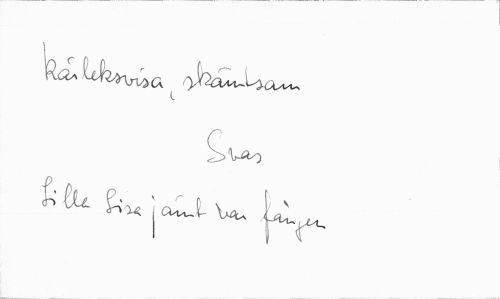 Kärleksvisa, skämtsam
Svas
Lilla Lisa jämt var fången